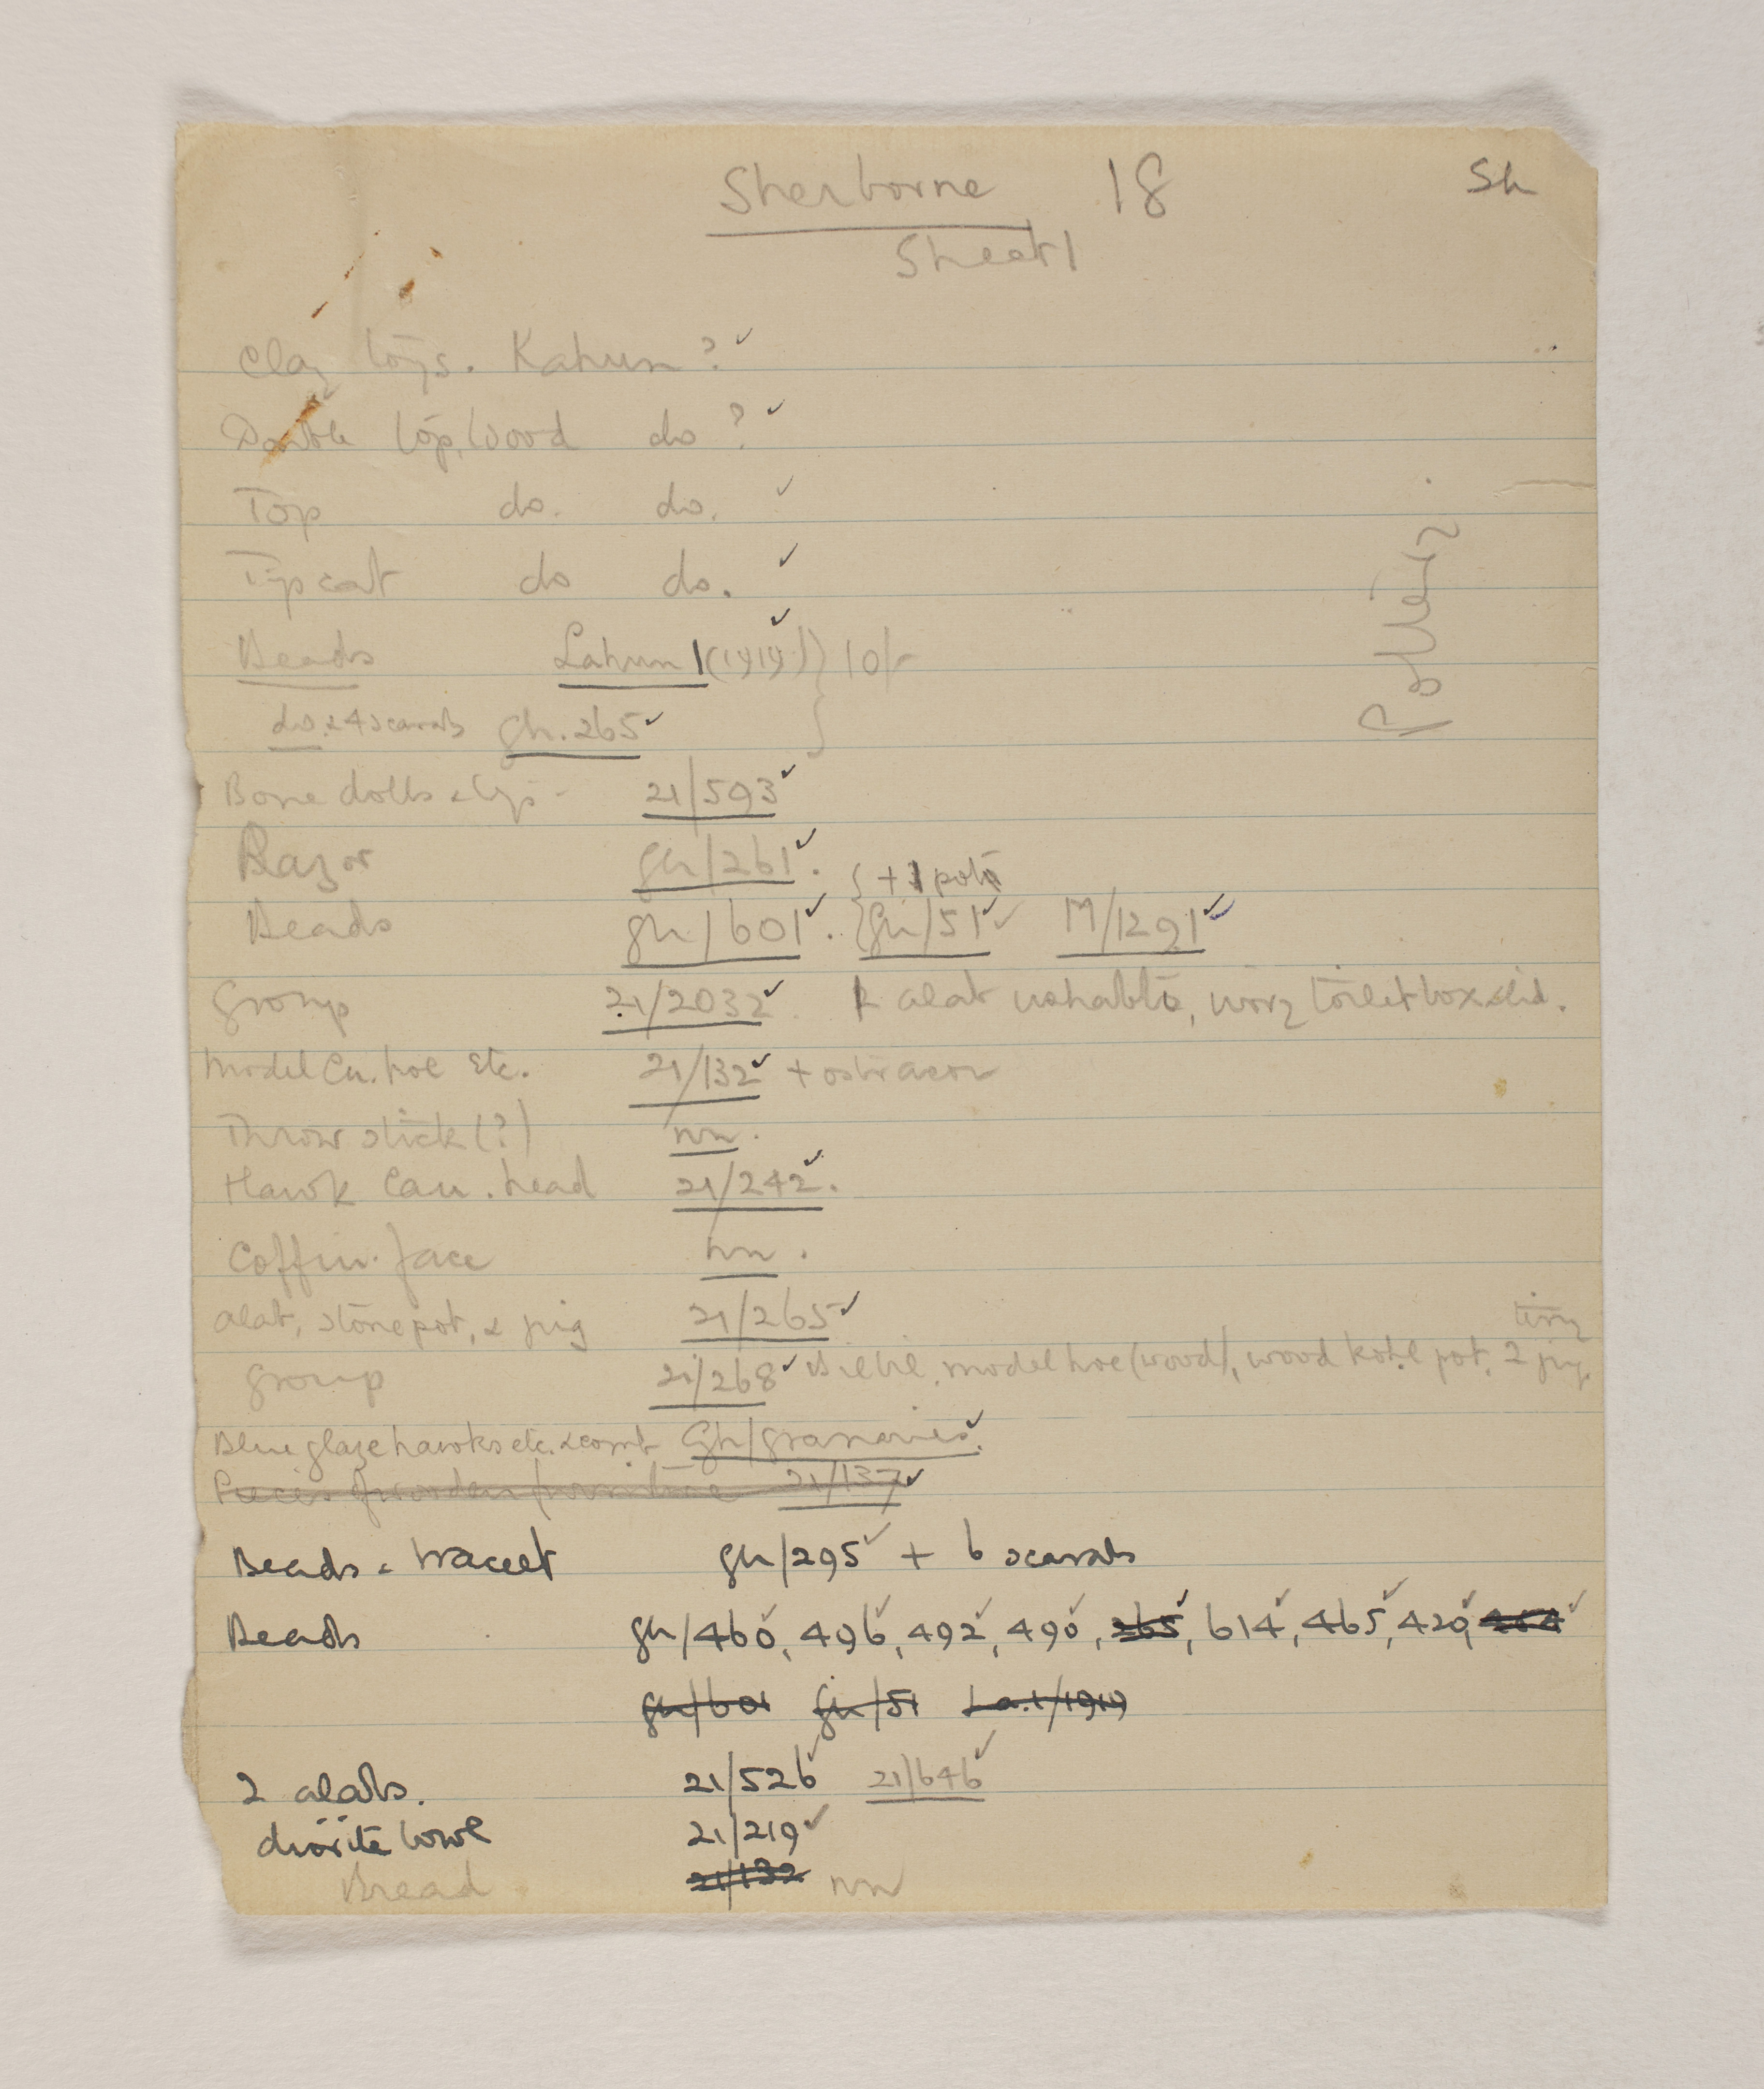 Sherborne 18 Sh
Sheet 1
Clay toys. Kahun? ✓
Double top, wood do ? ✓
Top do. do. ✓
Tip cat do do. ✓
Beads Lahun 1 (1919) ✓ } 10/-
do. & 4 scarabs Gh. 265 ✓ }
Bone dolls & 21/593 ✓
Razor Gh/261 ✓.
+ 1 pot
Beads Gh/601 ✓. { Gh/51 ✓ ✓ M/1291 ✓
Group 21/2032 ✓. alab ushabti, ivory toilet box & lid.
Model Cu. hoe Etc. 21/132 ✓ + ostracon
Throw stick (?) nn.
Hawk Can. head 21/242 ✓.
Coffin. face nn.
alab, stone pot, & pig 21/265 ✓
tiny
Group 21/268 ✓ model hoe (wood), wood kohl pot, 2 pig.
Blue glaze hawks etc. & Gh/granaries ✓.
Pieces of wooden furniture 21/137 ✓
Beads & bracelet Gh/295 ✓ + 6 scarabs
Beads Gh/460 ✓, 496 ✓, 492 ✓, 490 ✓, 265 ✓, 614 ✓, 465 ✓, 420 ✓, ✓
Gh/601 Gh/51 La.1/1919
2 alabs. 21/526 ✓ 21/646 ✓
diorite bowl 21/219 ✓
Bread 21/132 nn
Pottery.